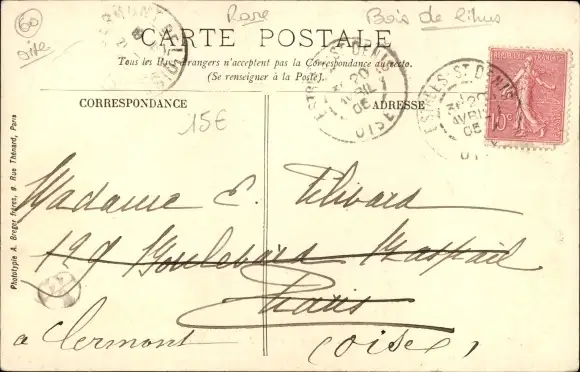 60
Oise
Rare
Bois de lihus
CARTE POSTALE
Tous les Pays étrangers n'acceptent pas la Correspondance au recto.
(Se renseigner à la Poste).
CORRESPONDANCE
ADRESSE
15€
CLERMONT
OISE
ESTREES-ST DENIS
20
AVRIL
05
OISE
ESTREES-ST DENIS
20
AVRIL
05
10c
Madame E.
129 Boulevard Raspail
Paris
à Clermont (Oise)
Phototypie A. Breger frères, 9 Rue Thénard, Paris